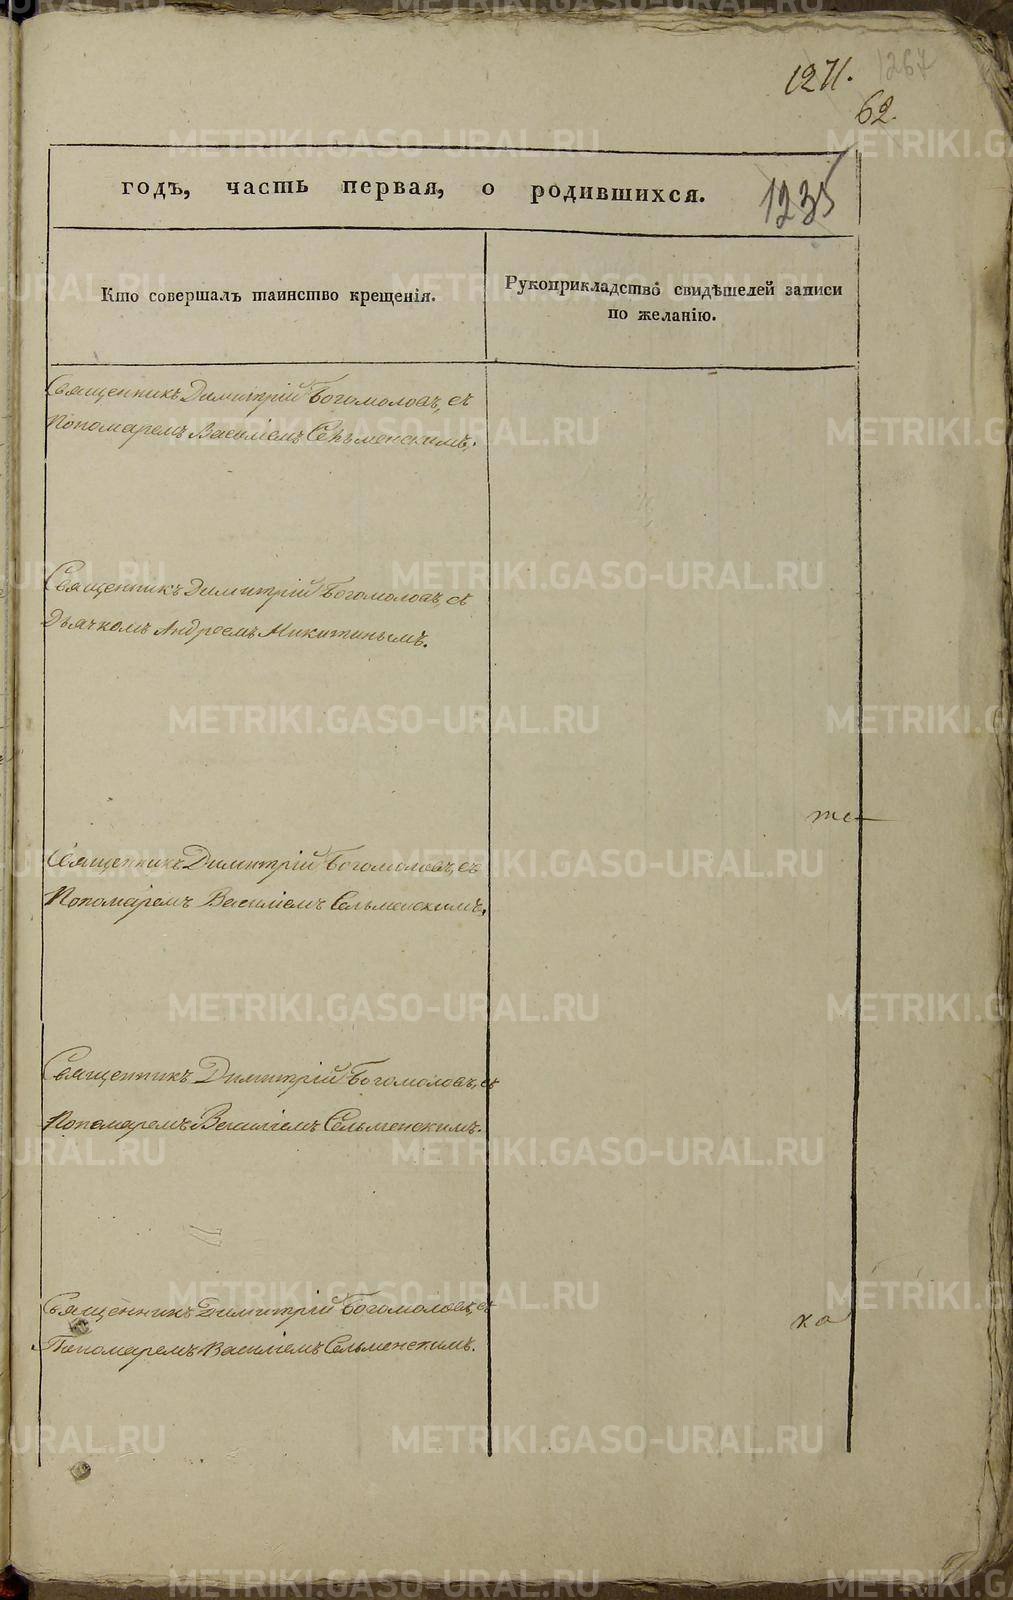 1271. 1267
62.
годъ, часть первая, о родившихся. 1235
Кто совершалъ таинство крещенія.
Рукоприкладство свидѣтелей записи
по желанію.
Священникъ Димитрій Богомоловъ, съ
Пономаремъ Василіемъ Сельменскимъ.
Священникъ Димитрій Богомоловъ, съ
Дьячкомъ Андреемъ Никитинымъ.
те
Священникъ Димитрій Богомоловъ, съ
Пономаремъ Василіемъ Сельменскимъ.
Священникъ Димитрій Богомоловъ, съ
Пономаремъ Василіемъ Сельменскимъ.
Священникъ Димитрій Богомоловъ, съ
ка
Пономаремъ Василіемъ Сельменскимъ.
METRIKI.GASO-URAL.RU